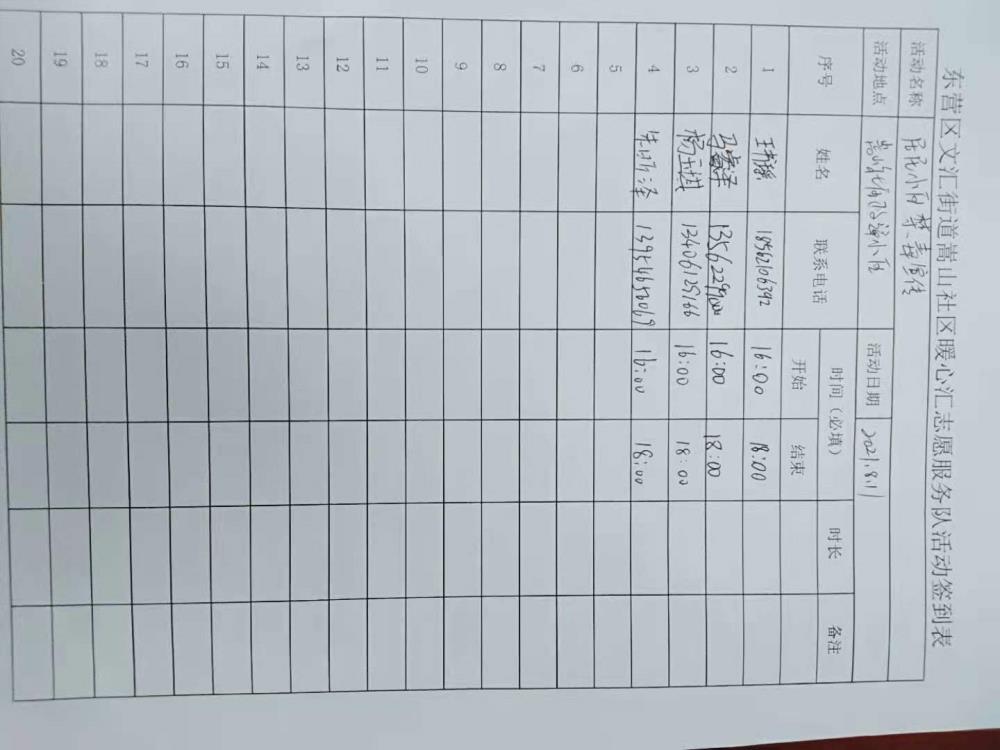 东营区文汇街道嵩山社区暖心汇志愿服务队活动签到表
活动名称 居民小区禁毒宣传
活动地点 小区 活动日期 2021.8.11
序号 姓名 联系电话 时间（必填） 时长 备注
开始 结束
1 18562106392 16:00 18:00
2 马睿泽 16:00 18:00
3 杨玉琪 13406125166 16:00 18:00
4 13954656069 16:00 18:00
5
6
7
8
9
10
11
12
13
14
15
16
17
18
19
20